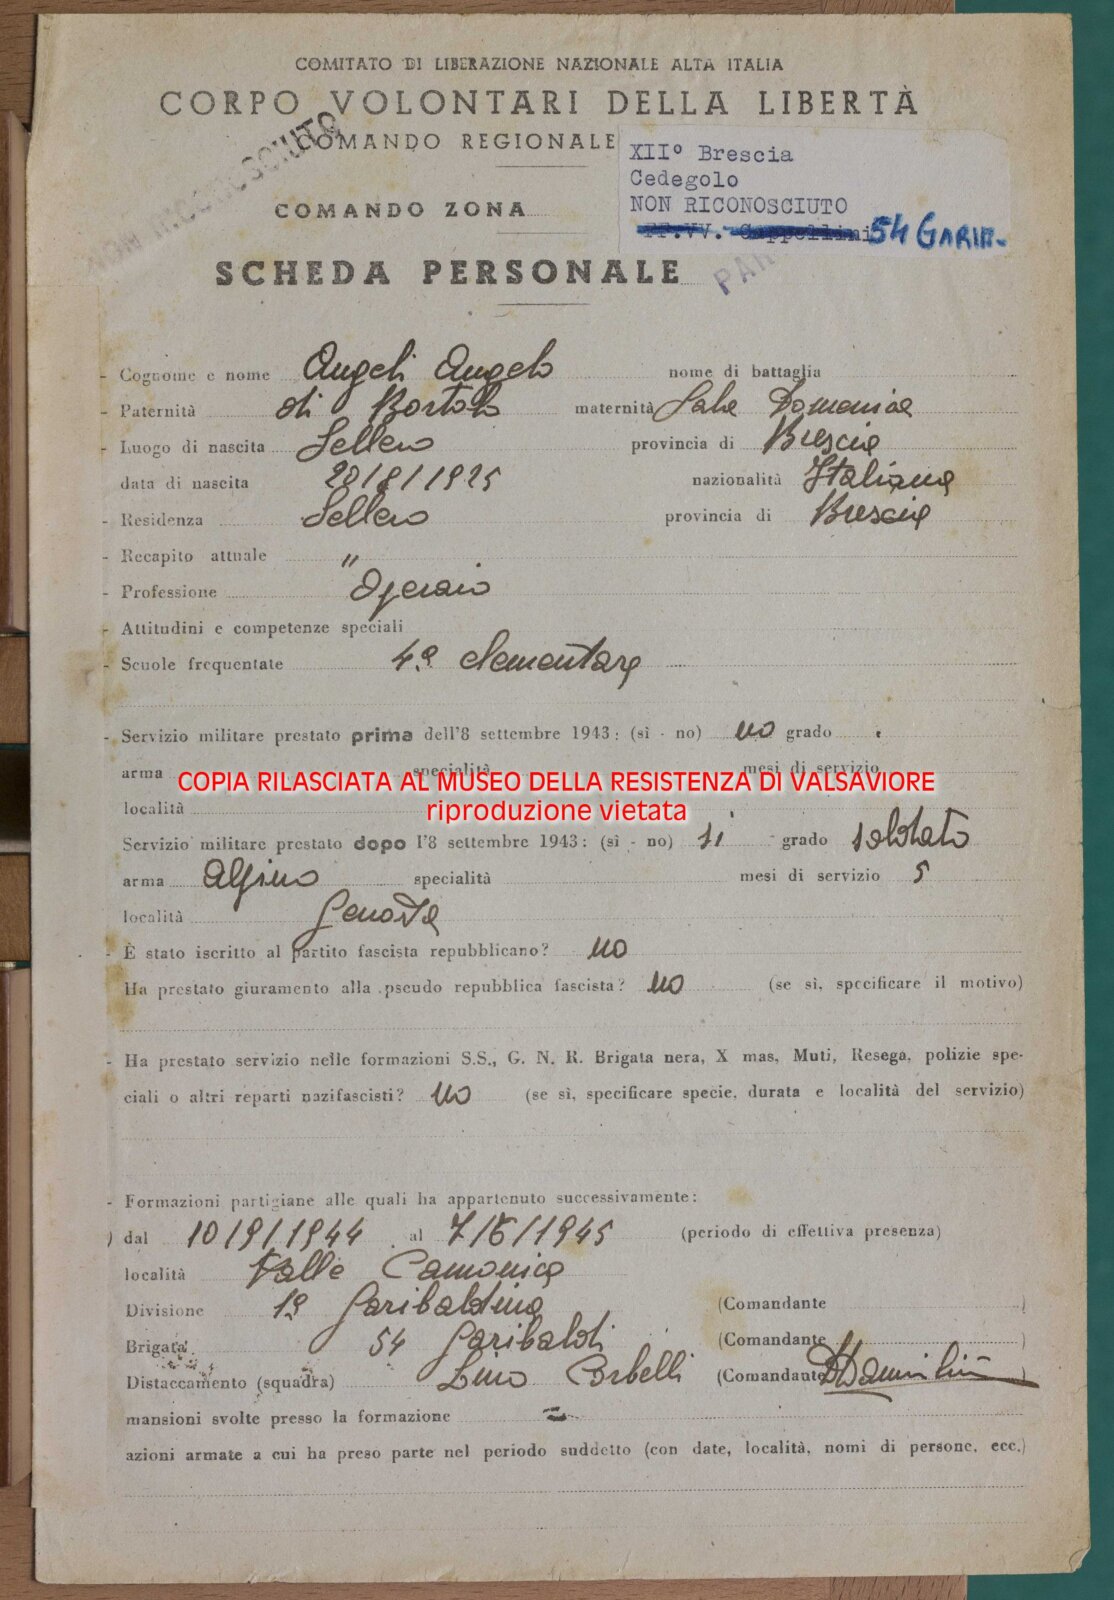 COMITATO DI LIBERAZIONE NAZIONALE ALTA ITALIA
CORPO VOLONTARI DELLA LIBERTÀ
NON RICONOSCIUTO
COMANDO REGIONALE
XII° Brescia
Cedegolo
NON RICONOSCIUTO
FF.VV. Cappellini 54 GARIB.
COMANDO ZONA
PAR
SCHEDA PERSONALE
- Cognome e nome Angeli Angelo nome di battaglia
- Paternità di Bortolo maternità Domenica
- Luogo di nascita Sellero provincia di Brescia
data di nascita 20/8/1925 nazionalità Italiana
- Residenza Sellero provincia di Brescia
- Recapito attuale "
- Professione Operaio
- Attitudini e competenze speciali
- Scuole frequentate 4ª elementare
- Servizio militare prestato prima dell'8 settembre 1943: (sì - no) no grado
arma specialità mesi di servizio
COPIA RILASCIATA AL MUSEO DELLA RESISTENZA DI VALSAVIORE
riproduzione vietata
località
Servizio militare prestato dopo l'8 settembre 1943: (sì - no) si grado soldato
arma Alpino specialità mesi di servizio 5
località
- È stato iscritto al partito fascista repubblicano? no
Ha prestato giuramento alla pseudo repubblica fascista? no (se sì, specificare il motivo)
- Ha prestato servizio nelle formazioni S.S., G. N. R. Brigata nera, X mas, Muti, Resega, polizie spe-
ciali o altri reparti nazifascisti? no (se sì, specificare specie, durata e località del servizio)
- Formazioni partigiane alle quali ha appartenuto successivamente:
) dal 10/9/1944 al 7/5/1945 (periodo di effettiva presenza)
località Valle Camonica
Divisione 1ª Garibaldina (Comandante )
Brigata 54 Garibaldi (Comandante )
Distaccamento (squadra) Lino (Comandante )
mansioni svolte presso la formazione =
azioni armate a cui ha preso parte nel periodo suddetto (con date, località, nomi di persone, ecc.)